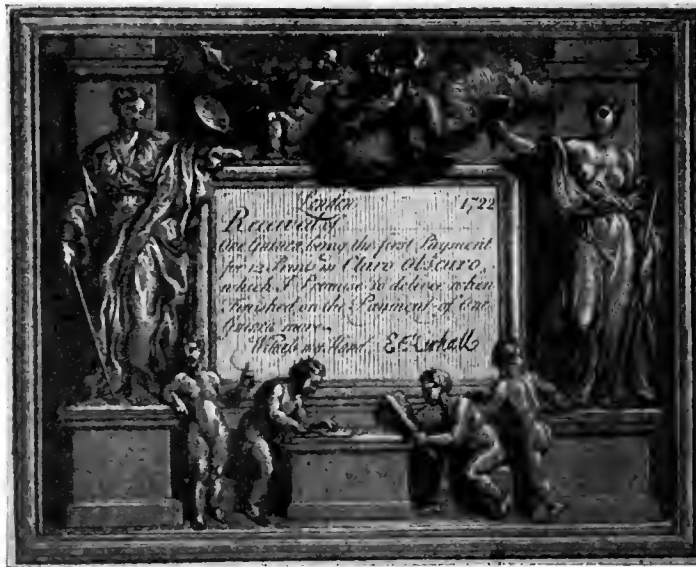 London 1722
Received of
One Guinea being the first Payment
for 12 Prints in Claro Obscuro,
which I Promise to deliver when
Finished, on the Payment of One
Guinea more.
Witness my Hand E Kirkall